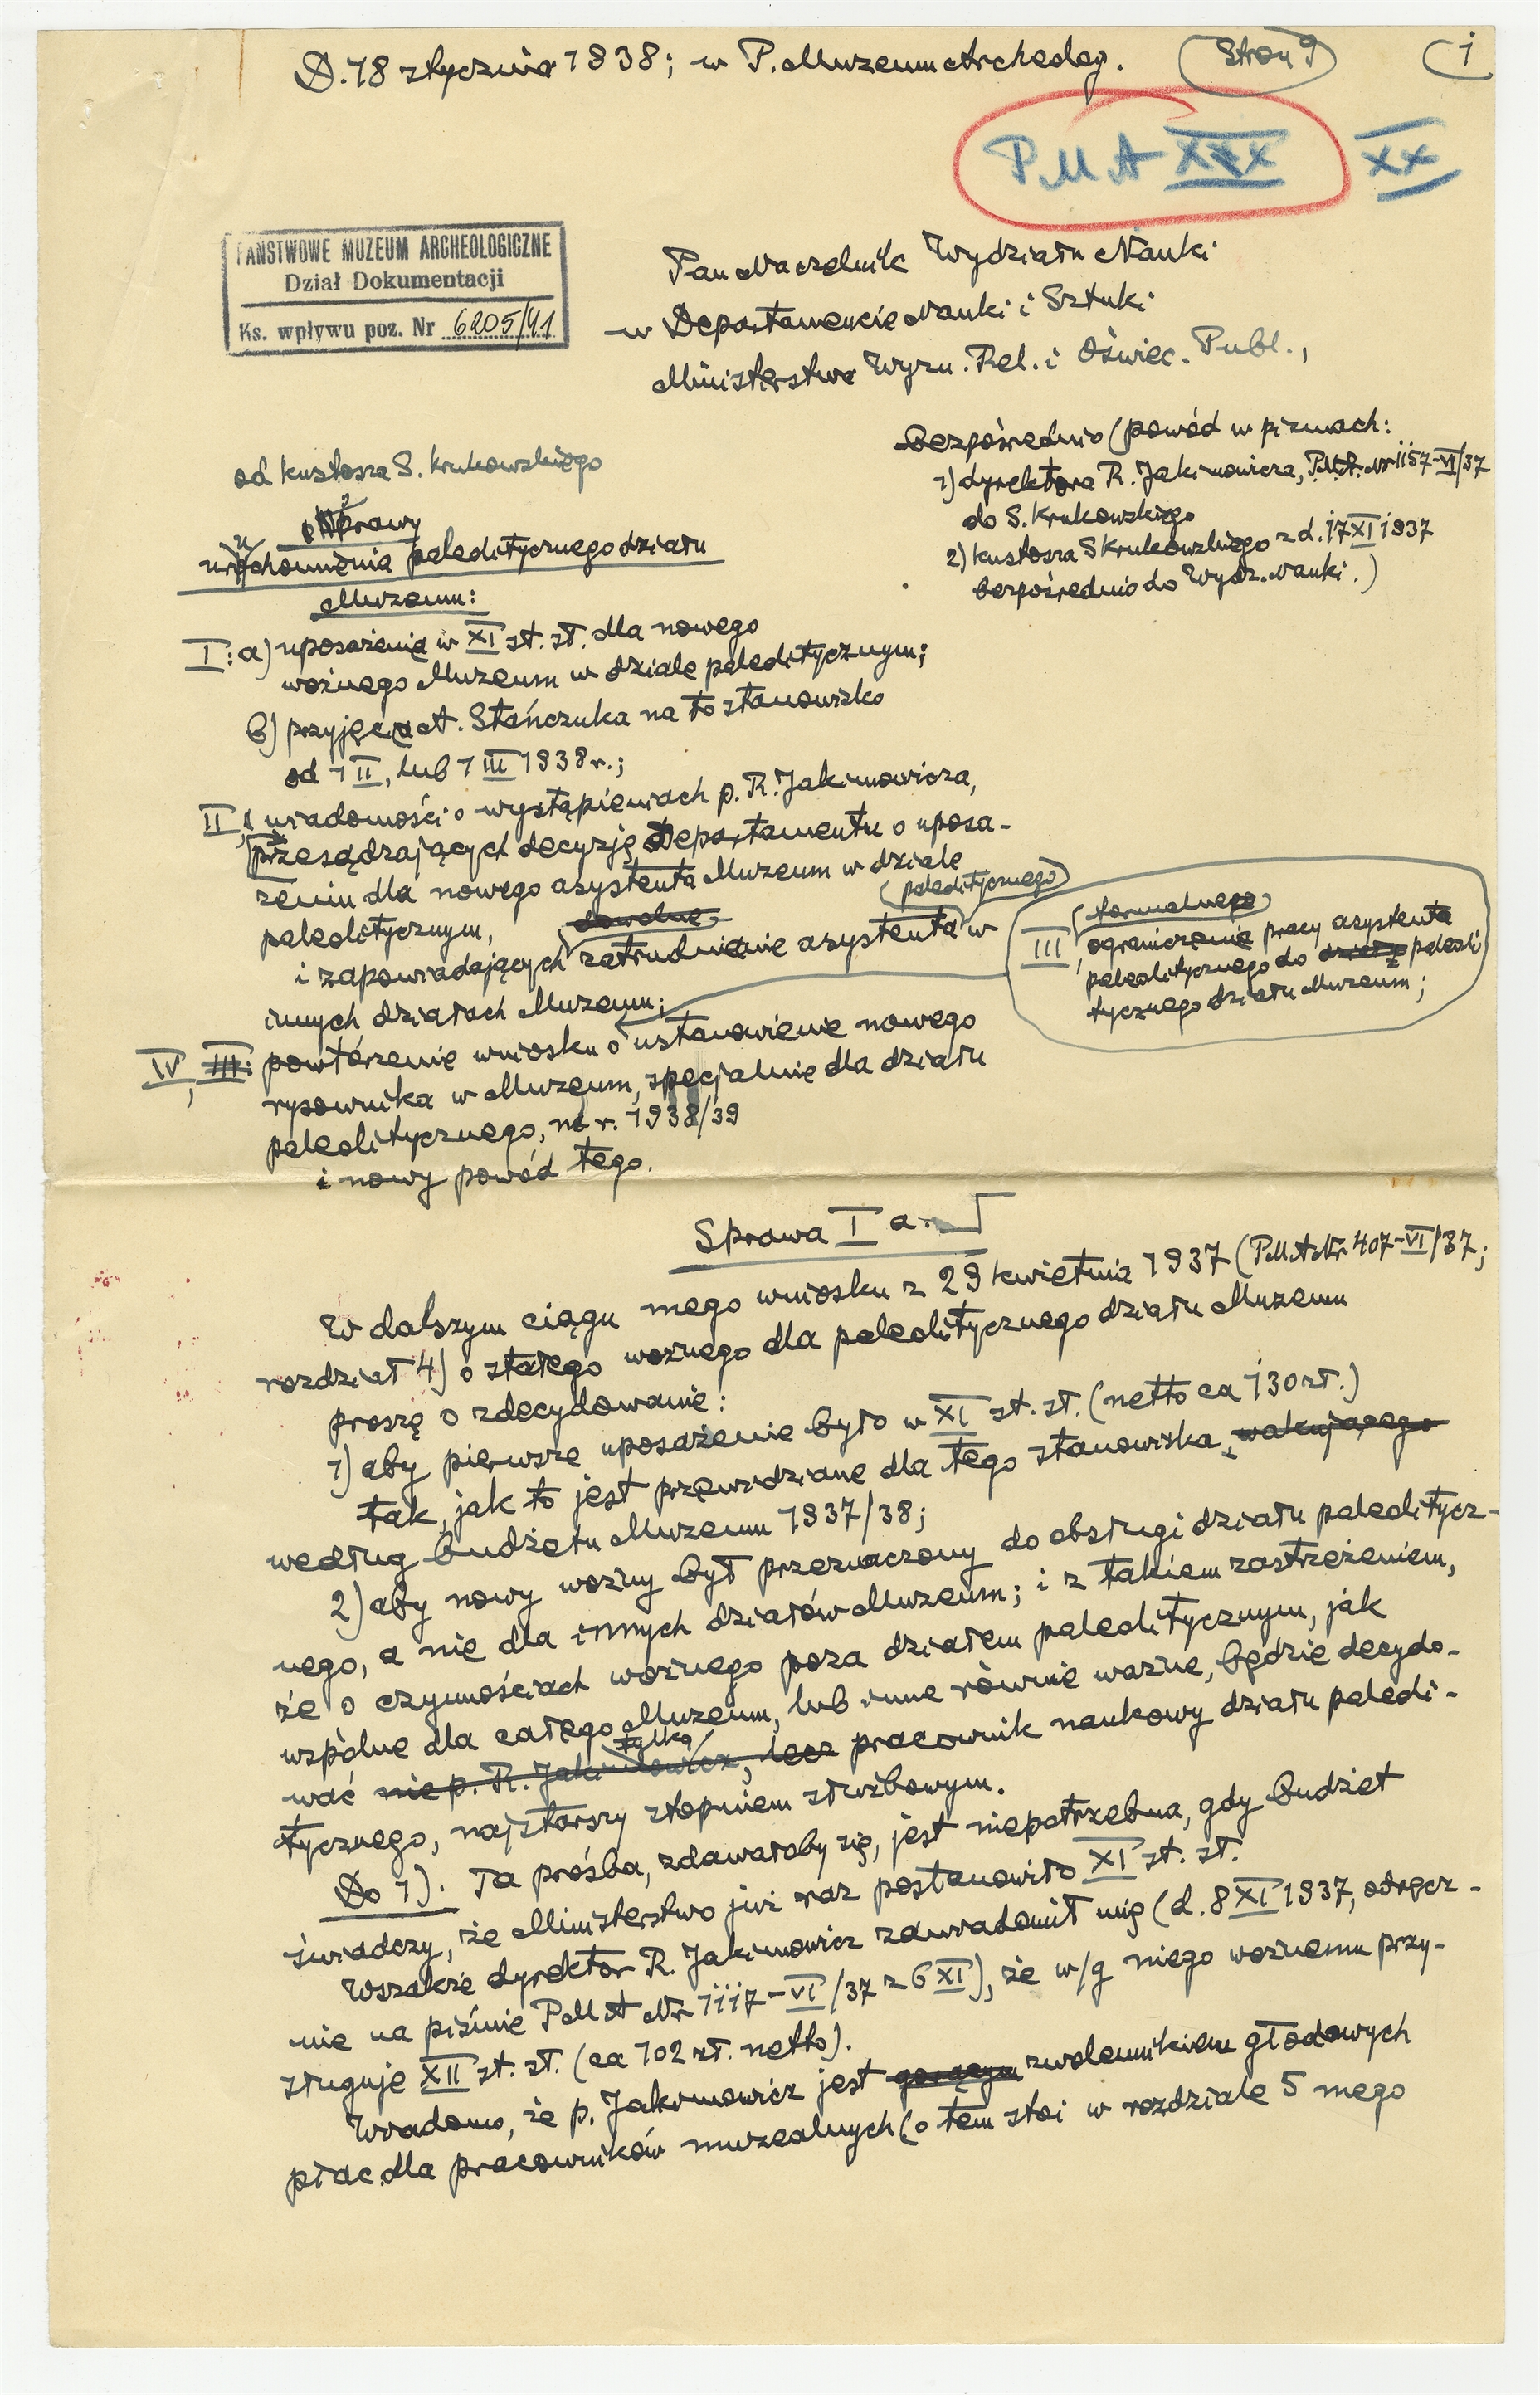 D. 18 stycznia 1938; w P. Muzeum Archeolog. (Stron 9) (1
PMA XXX XX
PAŃSTWOWE MUZEUM ARCHEOLOGICZNE
Dział Dokumentacji
Ks. wpływu poz. Nr 6205/41
Pan Naczelnik Wydziału Nauki
w Departamencie Nauki i Sztuki
Ministerstwa Wyzn. Rel. i Oświec. Publ.,
Bezpośrednio (powód w pismach:
1) dyrektora R. Jakimowicza, P.M.A. Nr 1157-VI/37
do S. Krukowskiego
2) kustosza S Krukowskiego z d. 17 XI 1937
bezpośrednio do Wydz. Nauki.)
od kustosza S. Krukowskiego
Sprawy
uruchomienia paleolitycznego działu
Muzeum:
I: a) uposażenia w XI st. sł. dla nowego
woźnego Muzeum w dziale paleolitycznym;
b) przyjęcia A. Stańczuka na to stanowisko
od 1 II, lub 1 III 1938 r.;
II, wiadomości o wystąpieniach p. R. Jakimowicza,
przesądzających decyzję Departamentu o uposa-
żeniu dla nowego asystenta Muzeum w dziale
paleolitycznym,
i zapowiadających dowolne zatrudnienie asystenta paleolitycznego w
innych działach Muzeum;
III, formalnego ograniczenie pracy asystenta
paleolitycznego do paleoli
tycznego działu Muzeum;
IV, III: powtórzenie wniosku o ustanowienie nowego
rysownika w Muzeum, specjalnie dla działu
paleolitycznego, na r. 1938/39
i nowy powód tego.
Sprawa I a.
W dalszym ciągu mego wniosku z 29 kwietnia 1937 (PMA Nr 407-VI/37;
rozdział 4) o stałego woźnego dla paleolitycznego działu Muzeum
proszę o zdecydowanie:
1) aby pierwsze uposażenie było w XI st. sł. (netto ca 130 zł.)
tak, jak to jest przewidziane dla tego stanowiska, wakującego
według budżetu Muzeum 1937/38;
2) aby nowy woźny był przeznaczony do obsługi działu paleolitycz-
nego, a nie dla innych działów Muzeum; i z takiem zastrzeżeniem,
że o czynnościach woźnego poza działem paleolitycznym, jak
wspólne dla całego Muzeum, lub inne równie ważne, będzie decydo-
wać nie p. R. Jakimowicz, lecz tylko pracownik naukowy działu paleoli-
tycznego, najstarszy stopniem służbowym.
Do 1). Ta prośba, zdawałoby się, jest niepotrzebna, gdy budżet
świadczy, że Ministerstwo już raz postanowiło XI st. sł.
Wszakże dyrektor R. Jakimowicz zawiadomił mię (d. 8 XI 1937, odręcz-
nie na piśmie PMA Nr 1117-VI/37 z 6 XI), że w/g niego woźnemu przy-
sługuje XII st. sł. (ca 102 zł. netto).
Wiadomo, że p. Jakimowicz jest gorącym zwolennikiem głodowych
płac dla pracowników muzealnych (o tem stoi w rozdziale 5 mego